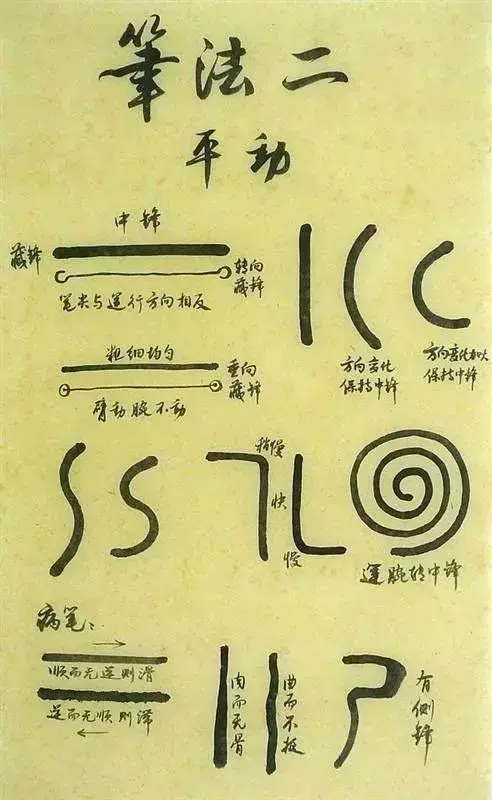 筆法二
平動
中鋒
藏鋒
转向
藏鋒
笔尖与運行方向相反
粗细均匀
垂向
藏鋒
臂动腕不动
方向变化
保持中鋒
方向变化加大
保持中鋒
稍慢
快
慢
運腕转中鋒
病笔：
顺而无逆则滑
逆而无顺则滞
肉而无骨
曲而不挺
有侧鋒